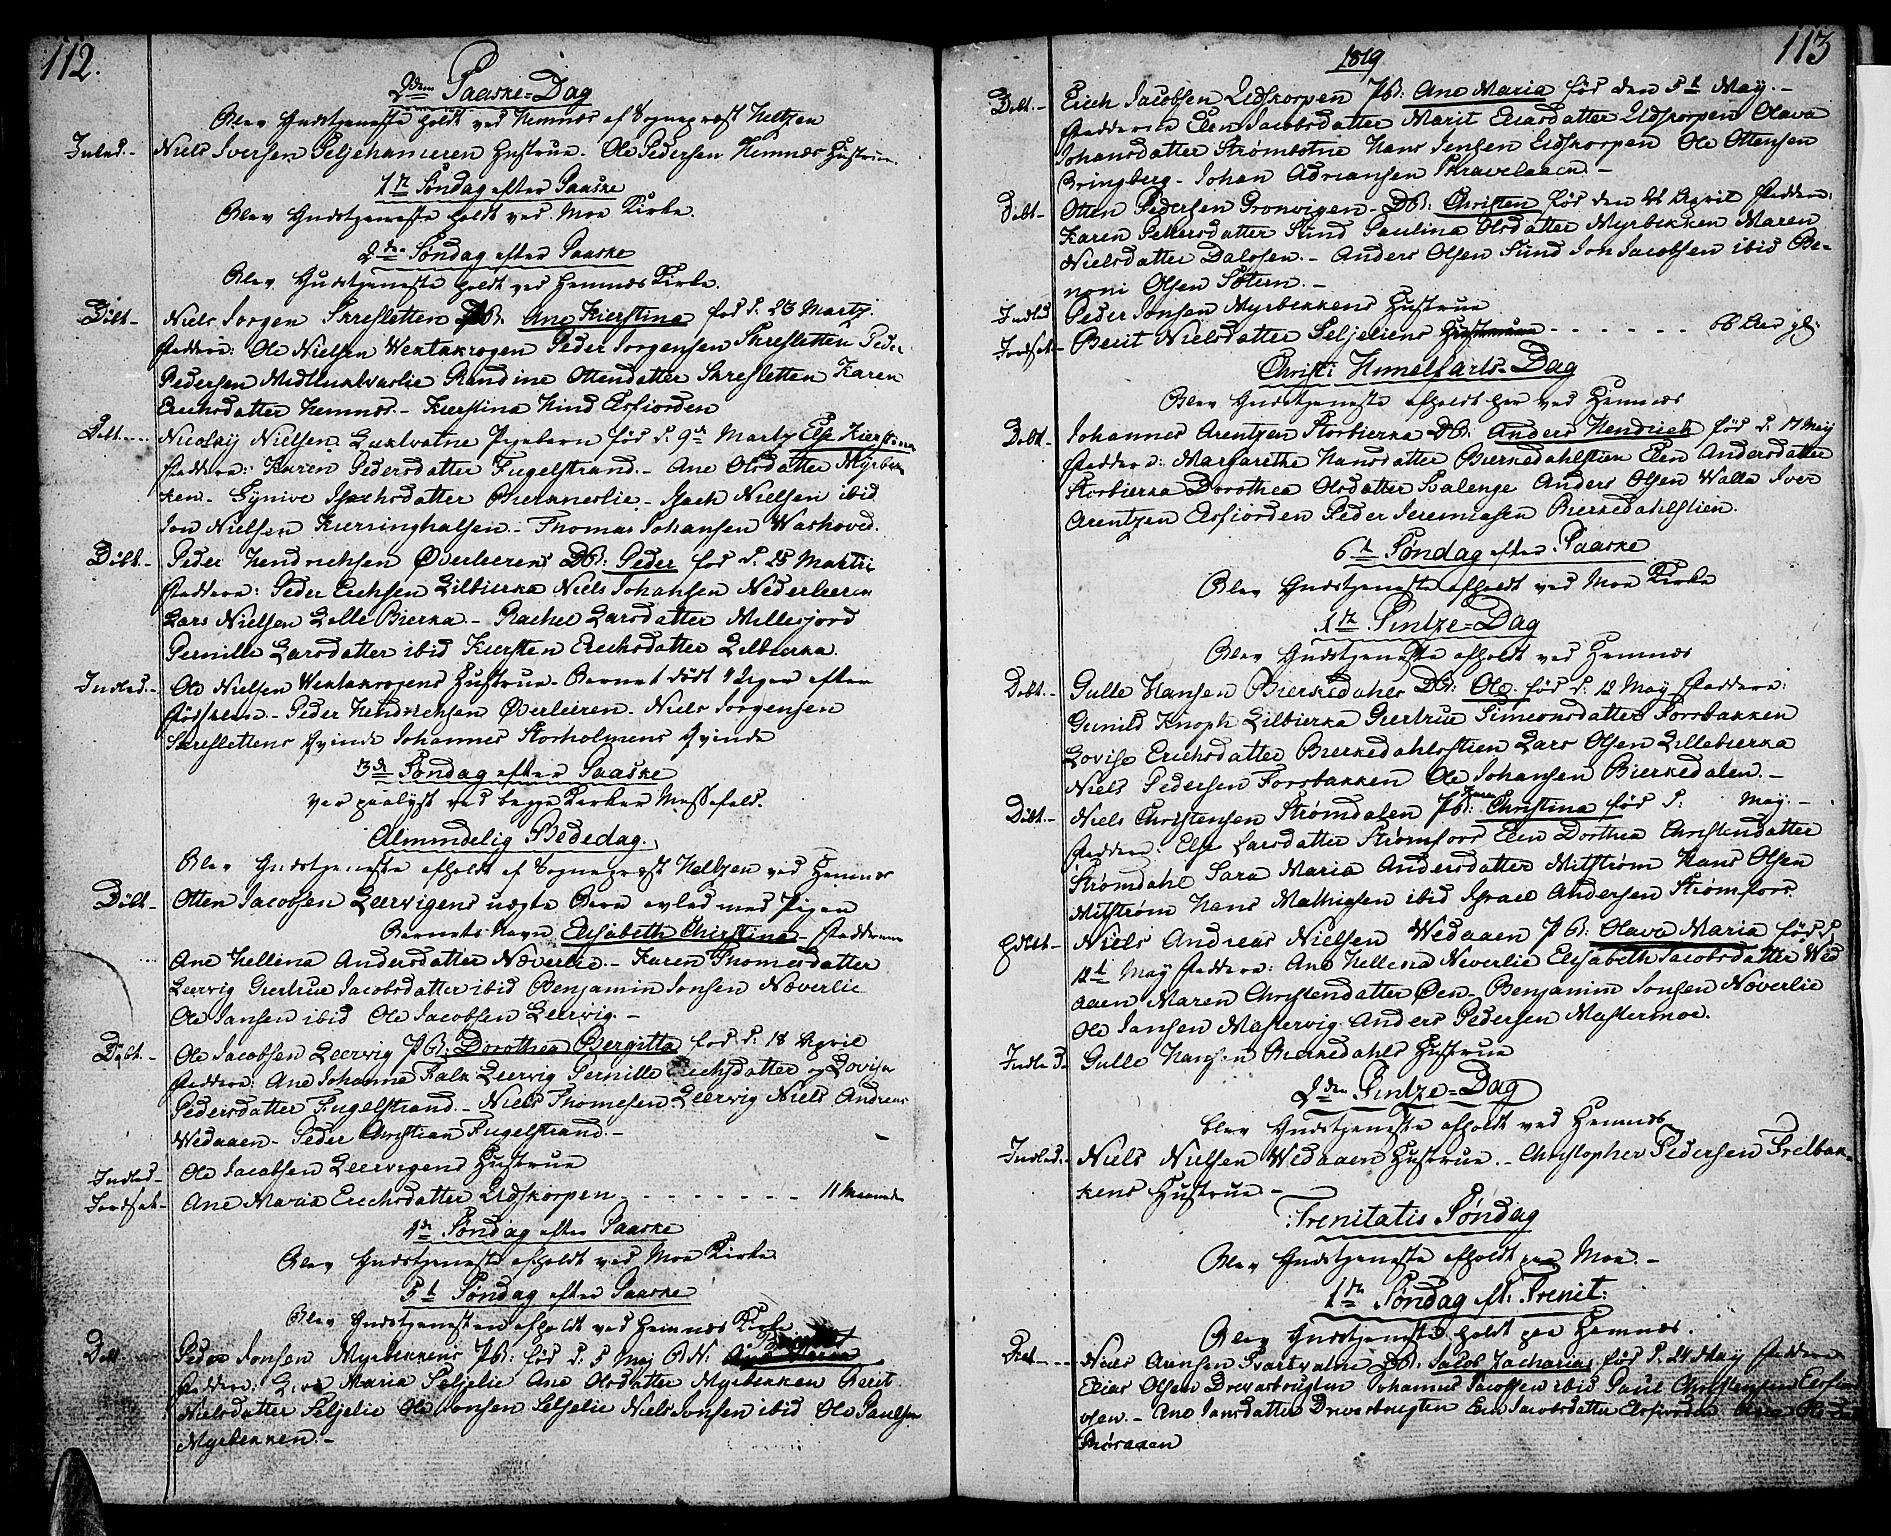 112.
2den Paaske=Dag
Blev Gudstjeneste holdt ved Hemnæs af Sognepræst Heltzen
Inled. - Niels Iversen Seljehameren Hustrue. Ole Pedersen Hemnæs Hustrue.
1ste Søndag efter Paaske
Blev Gudstjeneste holdt ved Moe Kirke.
2den Søndag efter Paaske
Blev Gudstjeneste holdt ved Hemnæs Kirke.
Døbt - Niels Jorgen Skresletten PB: Ane Kierstina fød d. 23 Martz.
Faddere: Ole Nielsen Wentakrogen Peder Jorgensen Skresletten Peder
Pedersen Randine Ottendatter Skresletten Karen
Erichsdatter Hemnæs. - Kierstina Hind Elsfiorden
Døbt ... Nicolay Nielsen Luktvatne Pigebarn fød d. 9de Martz Else Kierstina
Faddere: Karen Pedersdatter Fugelstrand. - Ane Olsdatter Myrbæk
ken. - Synive Isachsdatter Bierkneslie. - Isach Nielsen ibid
Jon Nielsen Kierringhalsen. - Thomas Johansen Washoved.
Døbt - Peder Hendrichsen Øverleerens DB: Peder fød d. 25 Martii
Faddere: Peder Erichsen Lilbierka Niels Johansen Nederleeren
Lars Nielsen Lille Bierka. - Rachel Larsdatter Millesjord
Pernille Larsdatter ibid Kiersten Erichsdatter Lilbierka.
Indled. - Ole Nielsen Wentakrogens Hustrue. Barnet dødt 4 Uger efter
Fødselen. - Peder Hendrichsen Øverleiren. - Niels Jorgensen
Skreslettens Qvinde Johannes Storholmens Qvinde
3de Søndag efter Paaske
var paalyst ved begge Kirker Messefald.
Almindelig Bededag.
Blev Gudstjeneste afholdt af Sognepræst Heltzen ved Hemnæs
Døbt - Otten Jacobsen Leervigens uægte Barn avled med Pigen
Barnets Navn Elisabeth Christina - Faddere
Ane Hellena Andersdatter Næverlie. - Karen Thomesdatter
Leervig Giertrue Jacobsdatter ibid Benjamin Jonsen Næverlie
Ole Jansen ibid Ole Jacobsen Leervig. -
Døbt - Ole Jacobsen Leervig PB: Dorothea Bergitta fød d. 18 April
Faddere: Ane Johanna Falk Leervig Pernille Erichsdatter og Lovisa
Pedersdatter Fugelstrand. - Niels Thomesen Leervig Niels Andreas
Wedaaen - Peder Christian Fugelstrand. -
Indled - Ole Jacobsen Leervigens Hustrue
Jordfæst - Ane Maria Erichsdatter Lidskorpen - - - - - - - - 11 Maaneder
4de Søndag efter Paaske
Blev Gudstjeneste afholdt ved Moe Kirke
5te Søndag efter Paaske
Blev Gudstjenesten afholdt ved Hemnæs Kirke
Døbt Peder Jonsen Myrbekkens PB: fød d. 5 Maj B.N:
Faddere: Maria Seljelie Ane Olsdatter Myrbekken Berit
Nielsdatter Seljelie Ole Jonsen Seljelie Niels Jonsen ibid Ole Paulsen
Myrbekken. -
1819
113
Døbt. - Erich Jacobsen Lidskorpen PB: Ane Maria fød den 5te May. -
Faddere Elen Jacobsdatter Marit Eliasdatter Lidskorpen Olava
Johansdatter Strømbotne Hans Jensen Lidskorpen Ole Ottensen
Bringberg - Johan Adriansen Skravelaaen. -
Døbt - Otten Pedersen Gronvigen - DB: Christen fød den April Faddere:
Karen Pettersdatter Sund Paulina Olsdatter Myrbekken Maren
Nielsdatter Dalosen. - Anders Olsen Sund Jon Jacobsen ibid Be-
noni Olsen -
Indled Peder Jonsen Myrbekkens Hustrue
Jordfæst - Berit Nielsdatter Seljeliens Hustrue - - - - - - 66 Aar gl:
Christi Himelfarts=Dag
Blev Gudstjeneste afholdt her ved Hemnæs
Døbt. - Johannes Arentzen Storbierka DB: Anders Hendrich fød d. 17 May
Faddere: Margarethe Hansdatter Bierkedahlstien Elen Andersdatter
Storbierka Dorothea Olsdatter Svalenge Anders Olsen Walla Iver
Arentzen Elsfiorden Peder Jeremiasen Bierkedahlstien.
6te Søndag efter Paaske
Blev Gudstjeneste afholdt ved Moe Kirke
1ste Pintze=Dag
Blev Gudstjeneste afholdt ved Hemnæs
Døbt. - Gulle Hansen Bierkedahls DB: Ole fød d: 12 May Faddere:
Gunild Knoph Lilbierka Giertrue Simeonsdatter Forsbakken
Lovise Erichsdatter Bierkedahlstien Lars Olsen Lillebierka
Niels Pedersen Forsbakken Ole Johansen Bierkedalen. -
Døbt. - Niels Christensen Strømdalen PB: Christina fød d: May. -
Faddere: Else Larsdatter Strømfors Elen Dorthea Christendatter
Strømdahl Sara Maria Andersdatter Mitstrøm Hans Olsen
Mitstrøm Hans Mathisen ibid Israel Andersen Strømfors.
Døbt - Niels Andreas Nielsen Wedaaen PB: Olava Maria fød d
12te May Faddere: Ane Hellena Neverlie Elisabeth Jacobsdatter Wed
aaen Maren Christendatter Øen - Benjamin Jonsen Næverlie
Ole Jansen Mastervig. Anders Pedersen Mastermoe.
Indled - Gulle Hansen Bierkedahls Hustrue
2den Pintze=Dag
blev Gudstjeneste afholdt ved Hemnæs
Indled. - Niels Nielsen Wedaaen Hustrue. - Christopher Pedersen Trelbak-
kens Hustrue -
Trenitatis Søndag
Blev Gudstjeneste afholdt paa Moe. -
1ste Søndag eft: Trenit:
Blev Gudstjeneste holdt paa Hemnæs.
Døbt - - - Niels Arensen Svartvatne DB: Jacob Zacharias fød d. 24 May Faddere
Elias Olsen Drevasbrugten Johannes Jacobsen ibid Paul Christensen
Ane Jansdatter Drevasbrugten Elen Jacobsdatter Elsfiorden